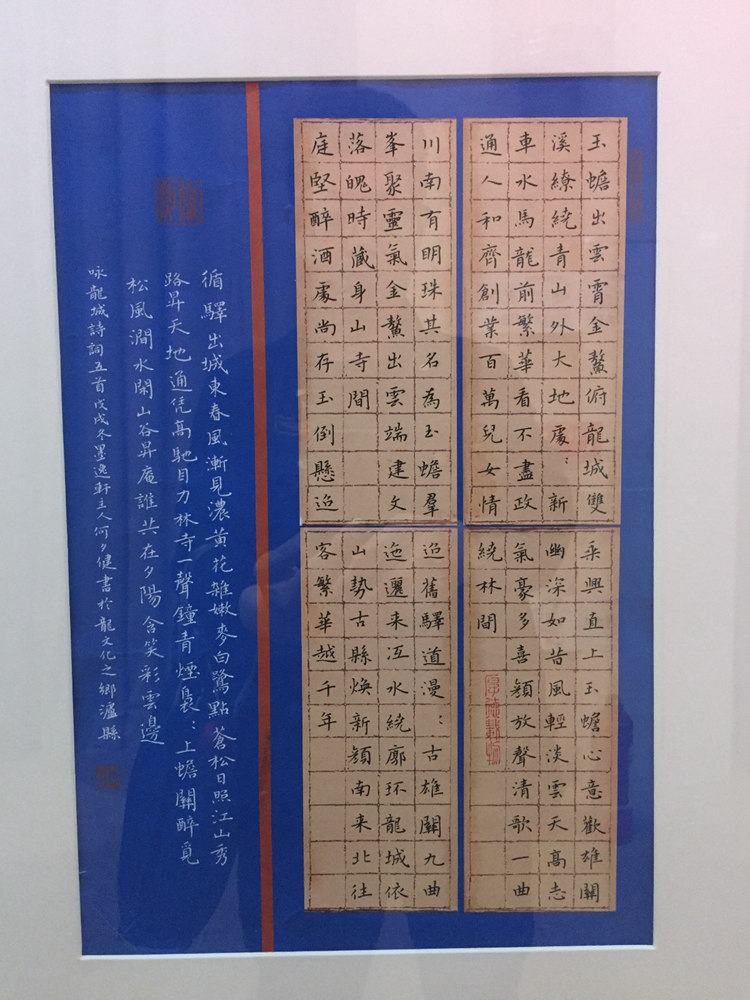 玉蟾出雲霄金鰲俯龍城雙
溪繚繞青山外大地處：新
車水馬龍前繁華看不盡政
通人和齊創業百萬兒女情
乘興直上玉蟾心意歡雄關
幽深如昔風輕淡雲天高志
氣豪多喜顏放聲清歌一曲
繞林間
厚德載物
川南有明珠其名為玉蟾羣
峯聚靈氣金鰲出雲端建文
落魄時藏身山寺間
庭堅醉酒處尚存玉倒懸迢
迢舊驛道漫：古雄關九曲
迤邐来冱水繞廓环龍城依
山勢古縣煥新顏南来北往
客繁華越千年
循驛出城東春風漸見濃黃花雜嫩麥白鷺點蒼松日照江山秀
路昇天地通凭高馳目力林寺一聲鐘青煙裊：上蟾關醉覓
松風澗水閑山谷昇庵誰共在夕陽含笑彩雲邊
咏龍城詩詞五首戊戌冬墨逸軒主人何夕健書於龍文化之鄉瀘縣